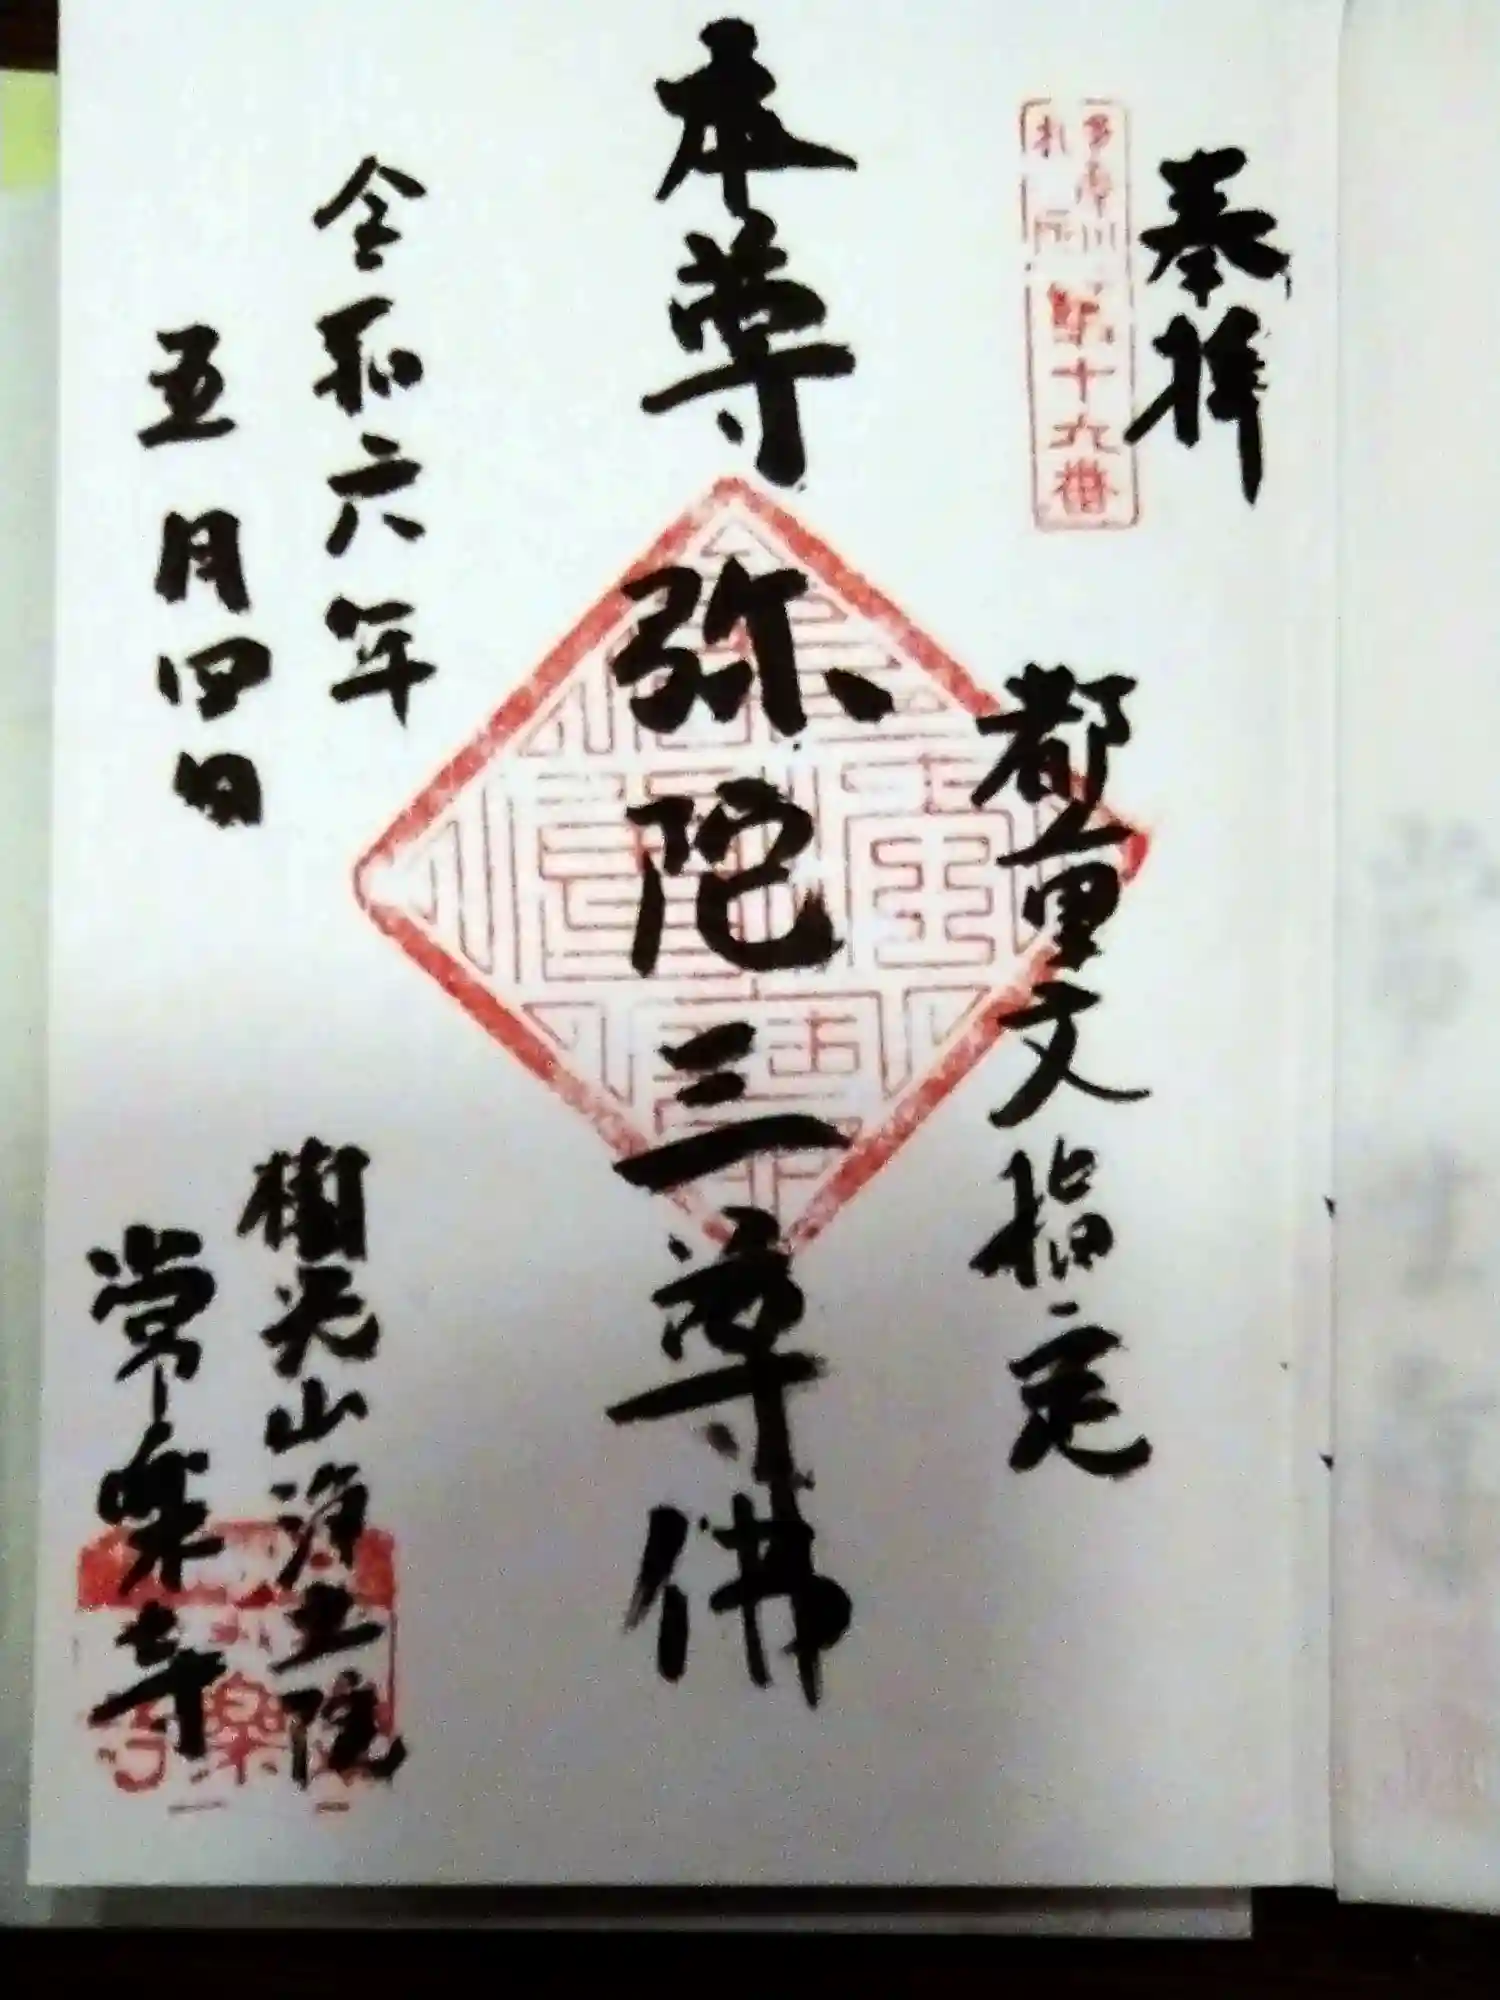 奉拝
多摩川
札所
第十九番
都重文指定
本尊弥陀三尊佛
令和六年
五月四日
樹光山浄土院
常楽寺